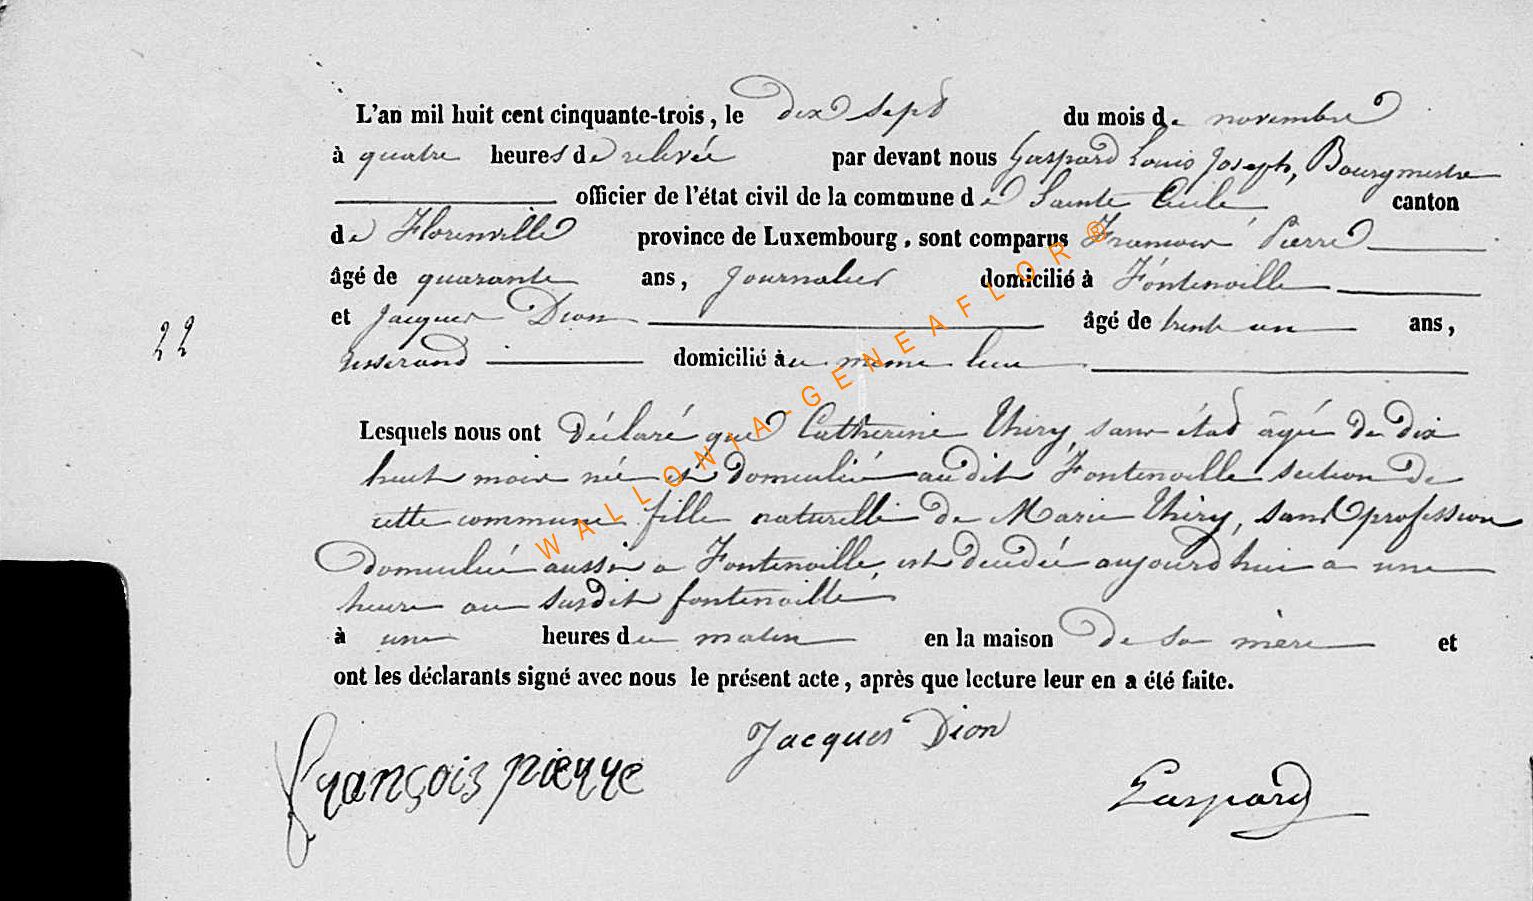 L'an mil huit cent cinquante-trois, le dix sept du mois de novembre
à quatre heures de relevée par devant nous Gaspard Louis Joseph, Bourgmestre
officier de l'état civil de la commune de Sainte Cécile canton
de Florenville province de Luxembourg, sont comparus François Pierre
âgé de quarante ans, journalier domicilié à Fontenoille
et Jacques Dion âgé de trente un ans,
22
tisserand domicilié à au meme lieu
Lesquels nous ont déclaré que Catherine Thiry, sans état âgée de dix
huit mois née et domiciliée audit Fontenoille section de
cette commune fille naturelle de Marie Thiry, sans profession
domiciliée aussi a Fontenoille, est décédée aujourd'hui a une
heure au susdit fontenoille
à une heures du matin en la maison de sa mère et
ont les déclarants signé avec nous le présent acte, après que lecture leur en a été faite.
Jacques Dion
françois pierre
Gaspard
WALLONIA-GENEAFLOR®